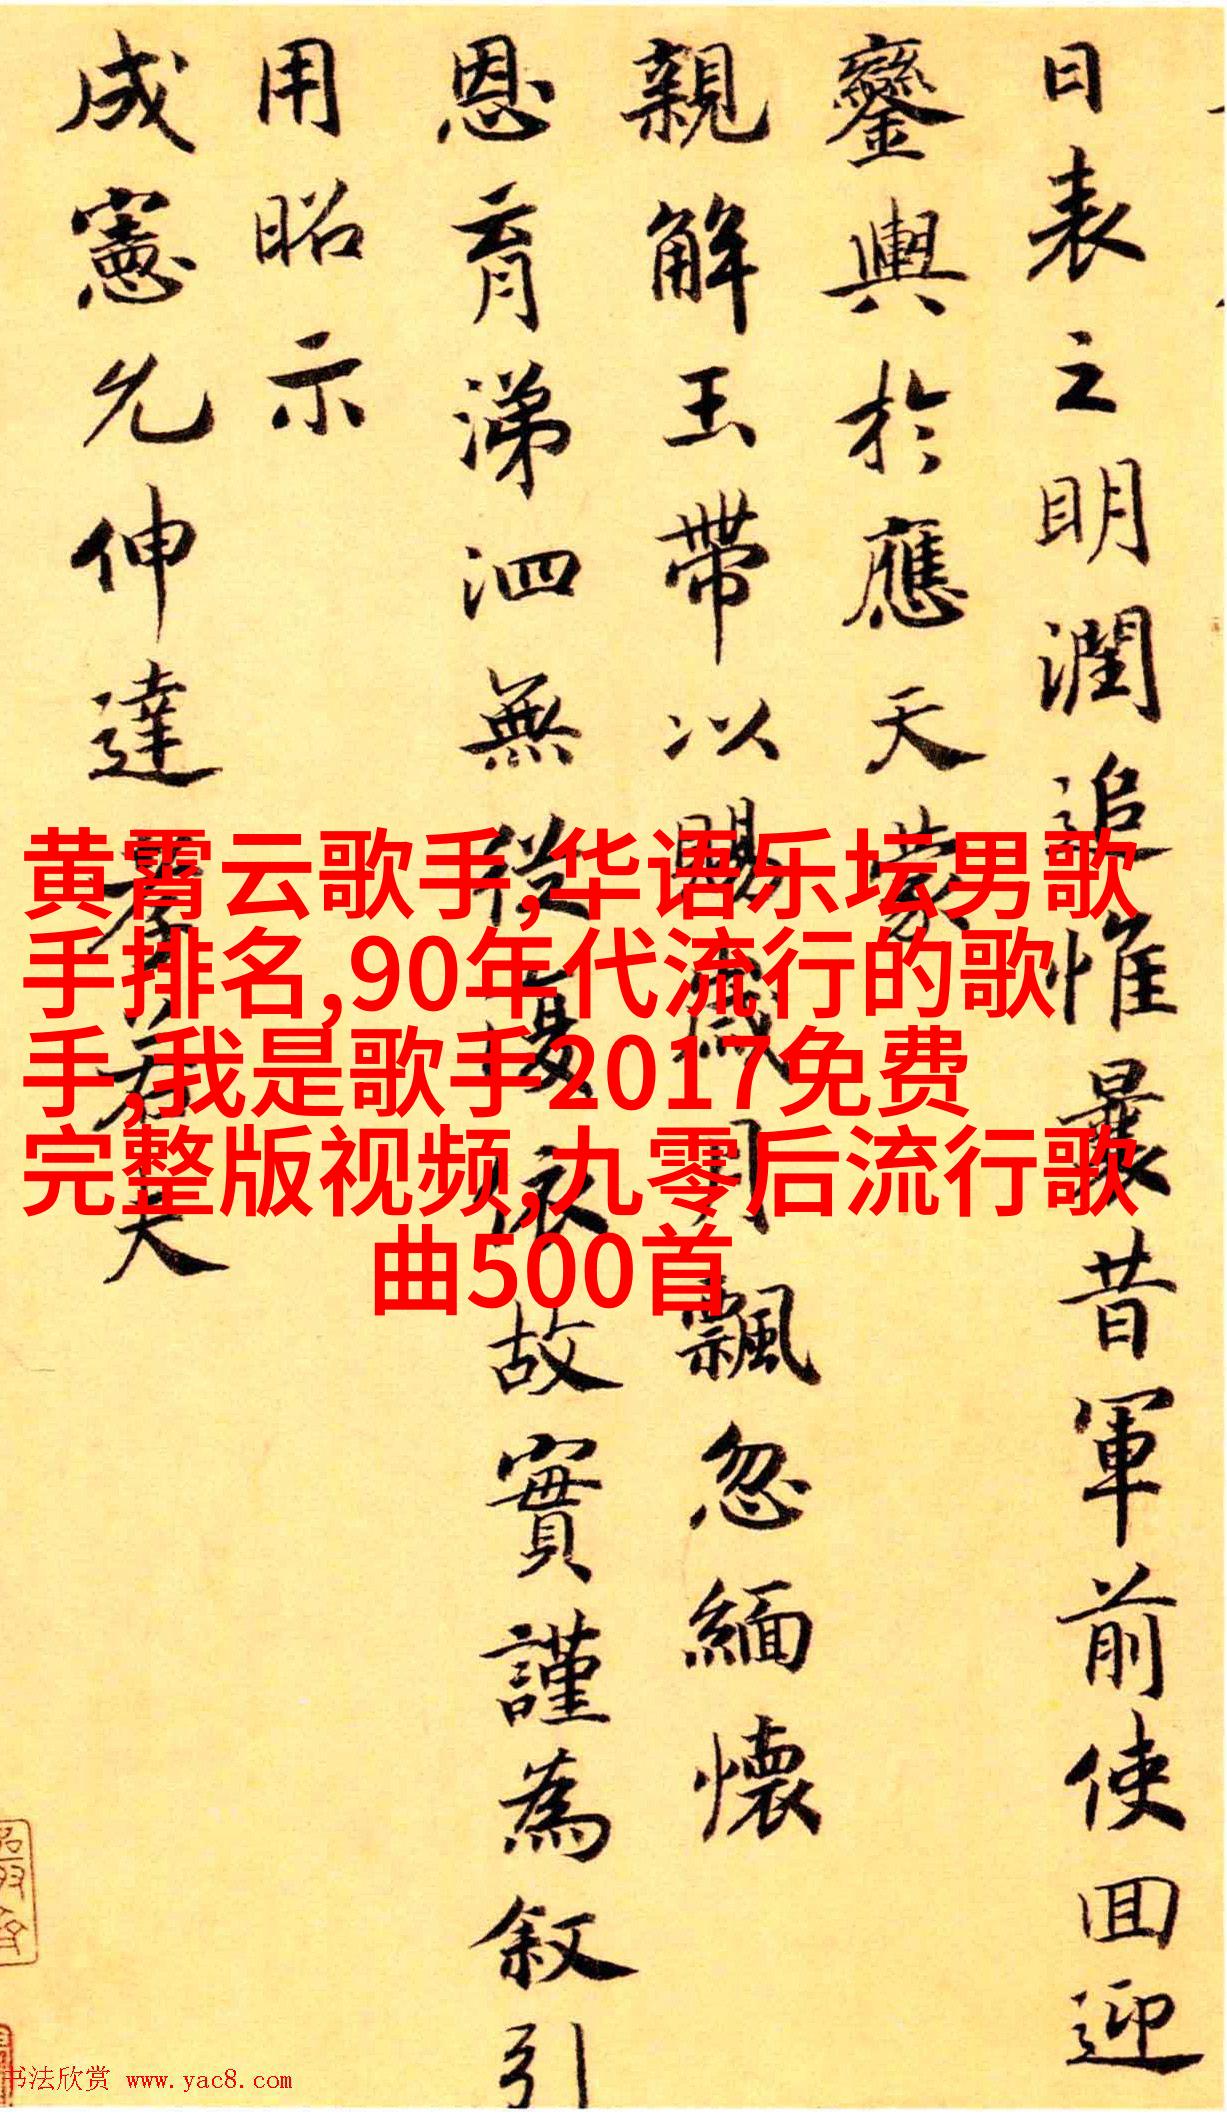 日表之明潤追惟曩昔軍前使回迎
鑾輿於應天蒙
親解玉帶以賜歲月飄忽緬懷
恩育涕泗無從依故實謹為叙引
用昭示
成憲允伸達孝若夫
黄霄云歌手,华语乐坛男歌
手排名,90年代流行的歌
手,我是歌手2017免费
完整版视频,九零后流行歌
曲500首
书法欣赏 www.yac8.com